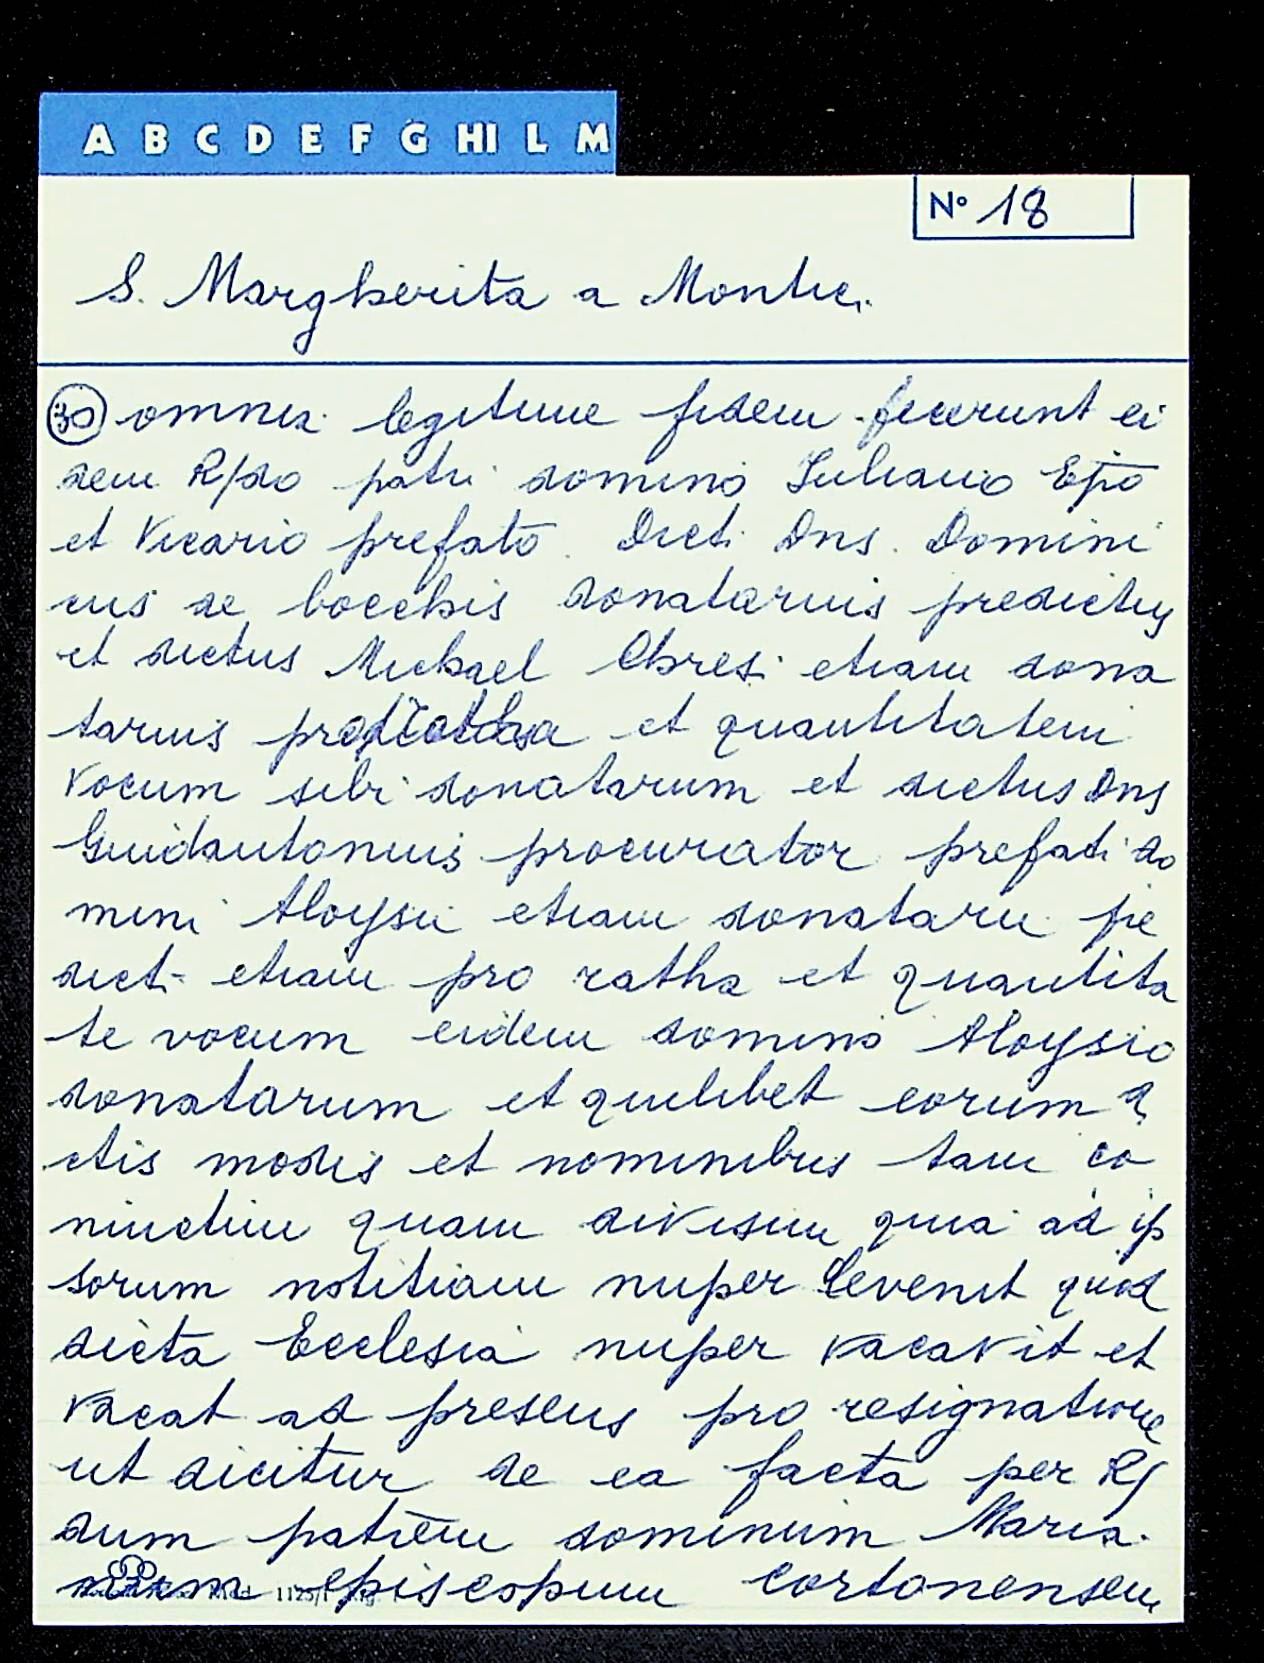 A B C D E F G HI L M
N° 18
S. Margherita a Montici
30 omnia legitime fidem fecerunt ei
dem R/do patri domino Iuliano Epō
et Vicario prefato. Dict. Dns. Domini
cus de bocchis donatarius predictus
et dictus Michael Chresi etiam dona
tarius pro et quantitatem
vocum sibi donatarum et dictus Dns
Guidantonius procurator prefati do
mini Aloysii etiam donatarii pre
dict- etiam pro ratha et quantita
te vocum eidem domino Aloysio
donatarum et quelibet eorum
ctis modis et nominibus tam co
niuctim quam divisim quia ad ip
sorum notitiam nuper devenit quod
dicta Ecclesia nuper vacavit et
vacat ad presens pro resignatione
ut dicitur de ea facta per R/
dum patrem dominum Maria
num episcopum cortonensem
Mod. 1125/1